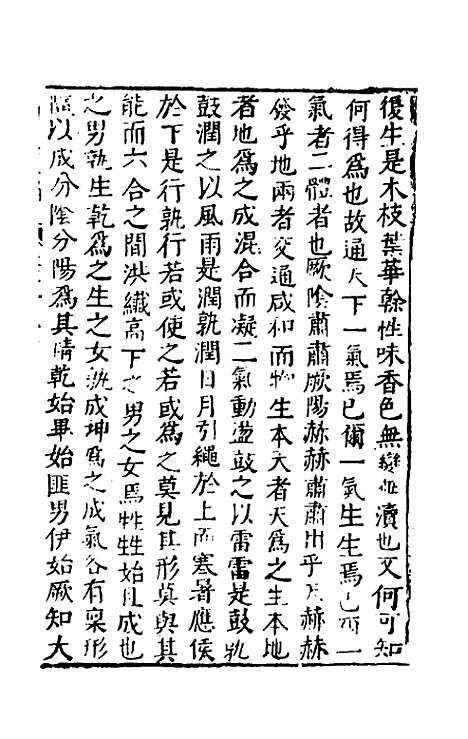 後生是木枝葉華榦性味香色無變無瀆也又何可知
何得爲也故通天下一氣焉已爾一氣生生焉已爾一
氣者二體者也厥陰肅肅厥陽赫赫肅肅出乎天赫赫
發乎地兩者交通咸和而物生本天者天爲之生本地
者地爲之成混合而凝二氣動盪鼓之以雷雷是鼓孰
鼓潤之以風雨是潤孰潤日月引繩於上而寒暑應侯
於下是行孰行若或使之若或爲之莫見其形莫與其
能而六合之間洪纖高下之男之女焉牲牲始且成也
之男孰生乾爲之生之女孰成坤爲之成氣各有稟形
以成分陰分陽爲其乾始畢始匪男伊始厥知大